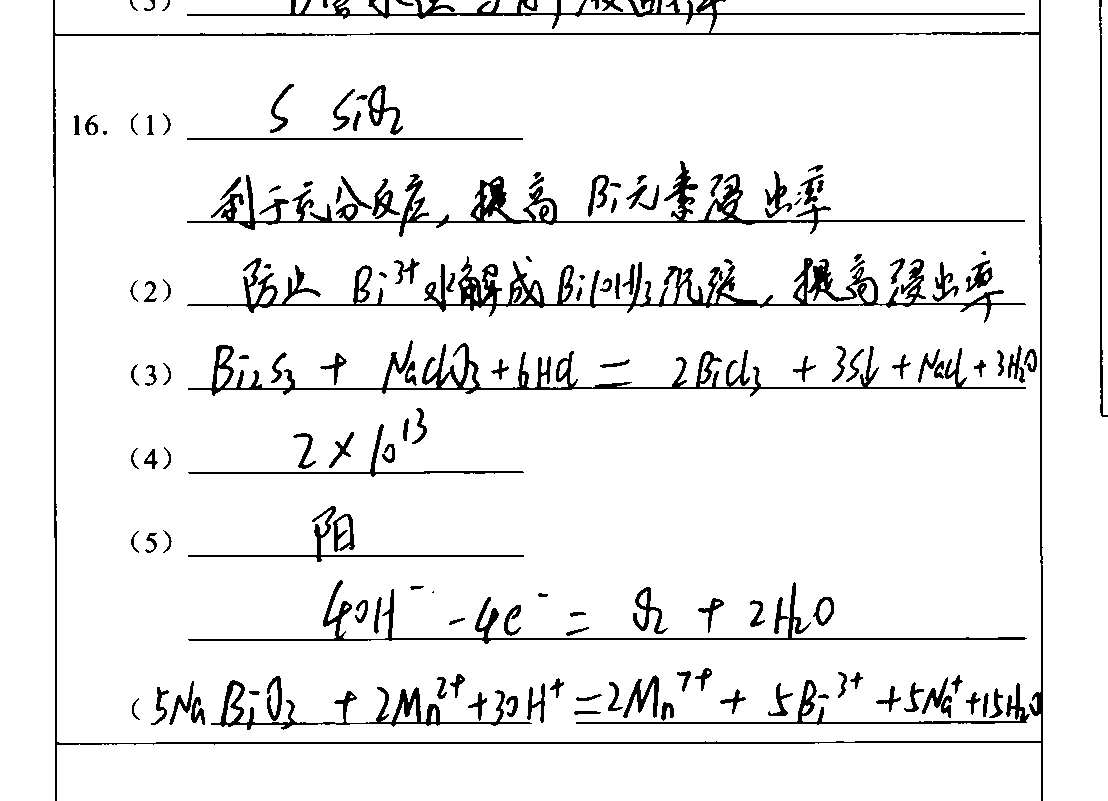 (3)
16. (1) S SiO₂
利于充分反应,提高 Bi元素浸出率
(2) 防止 Bi³⁺水解成Bi(OH)₃沉淀,提高浸出率
(3) Bi₂S₃ + NaClO₃+6HCl = 2BiCl₃ + 3S↓+NaCl+3H₂O
(4) 2×10¹³
(5) 阳
4OH⁻ -4e⁻ = O₂ + 2H₂O
(5NaBiO₃ + 2Mn²⁺+30H⁺=2Mn⁷⁺ + 5Bi³⁺ +5Na⁺+15H₂O